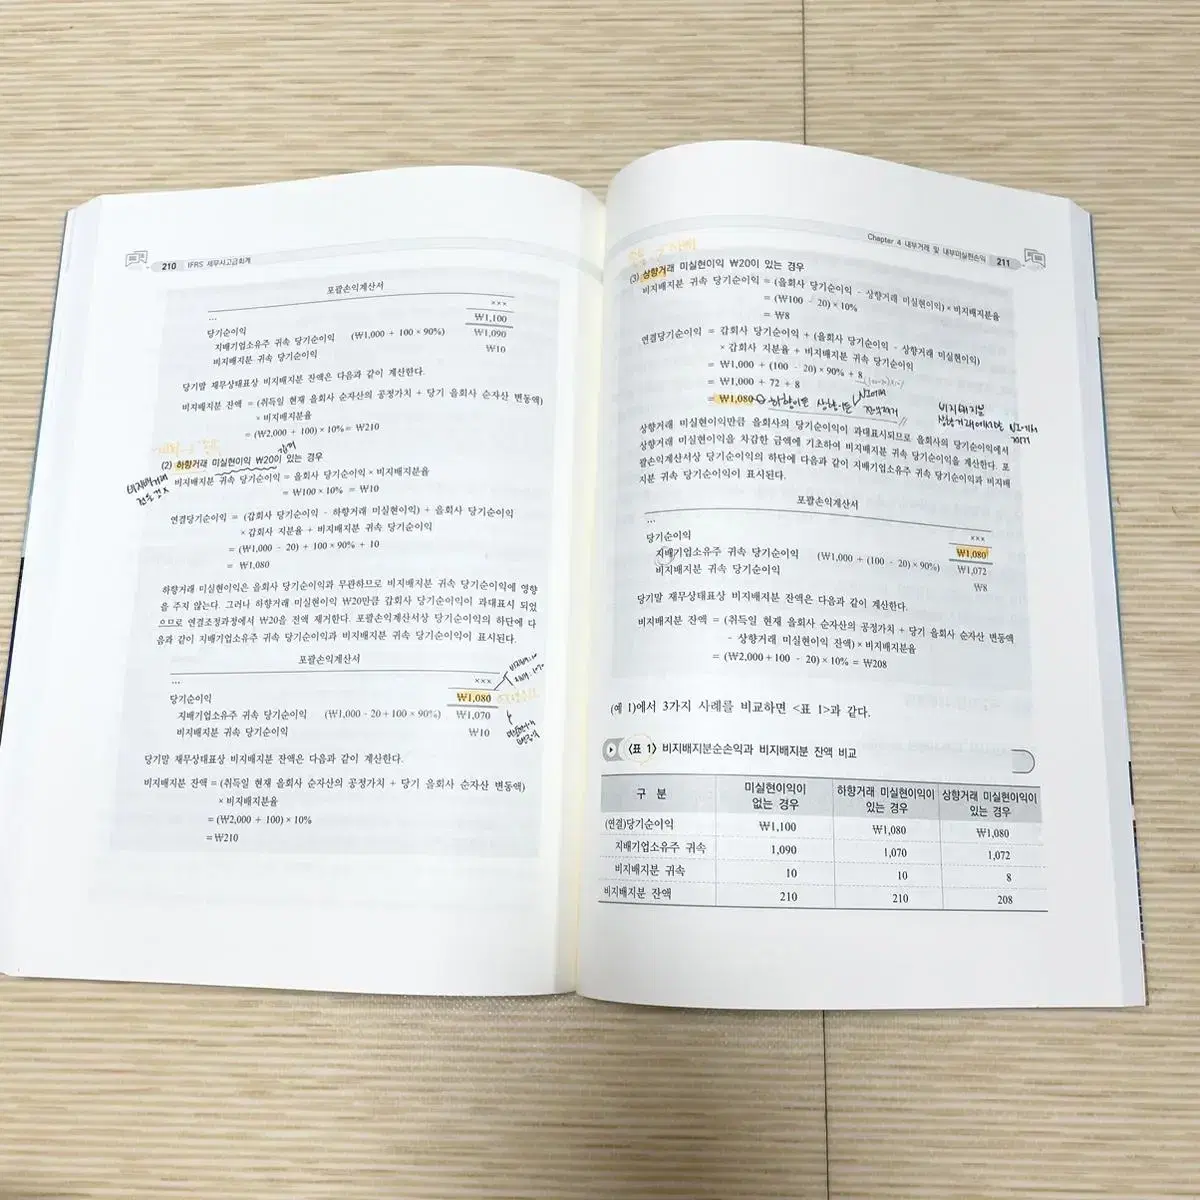 210 IFRS 세무사고급회계
포괄손익계산서
×××
…
₩1,100
당기순이익
지배기업소유주 귀속 당기순이익 (₩1,000 + 100 × 90%) ₩1,090
비지배지분 귀속 당기순이익 ₩10
당기말 재무상태표상 비지배지분 잔액은 다음과 같이 계산한다.
비지배지분 잔액 = (취득일 현재 을회사 순자산의 공정가치 + 당기 을회사 순자산 변동액)
× 비지배지분율
= (₩2,000 + 100) × 10% = ₩210
(2) 하향거래 미실현이익 ₩20이 있는 경우
비지배지분 귀속 당기순이익 = 을회사 당기순이익 × 비지배지분율
= ₩100 × 10% = ₩10
연결당기순이익 = (갑회사 당기순이익 - 하향거래 미실현이익) + 을회사 당기순이익
× 갑회사 지분율 + 비지배지분 귀속 당기순이익
= (₩1,000 - 20) + 100 × 90% + 10
= ₩1,080
하향거래 미실현이익은 을회사 당기순이익과 무관하므로 비지배지분 귀속 당기순이익에 영향
을 주지 않는다. 그러나 하향거래 미실현이익 ₩20만큼 갑회사 당기순이익이 과대표시 되었
으므로 연결조정과정에서 ₩20을 전액 제거한다. 포괄손익계산서상 당기순이익의 하단에 다
음과 같이 지배기업소유주 귀속 당기순이익과 비지배지분 귀속 당기순이익이 표시된다.
포괄손익계산서
×××
당기순이익 ₩1,080
지배기업소유주 귀속 당기순이익 (₩1,000 - 20 + 100 × 90%) ₩1,070
비지배지분 귀속 당기순이익 ₩10
당기말 재무상태표상 비지배지분 잔액은 다음과 같이 계산한다.
비지배지분 잔액 = (취득일 현재 을회사 순자산의 공정가치 + 당기 을회사 순자산 변동액)
× 비지배지분율
= (₩2,000 + 100) × 10%
= ₩210
Chapter 4 내부거래 및 내부미실현손익 211
(3) 상향거래 미실현이익 ₩20이 있는 경우
비지배지분 귀속 당기순이익 = (을회사 당기순이익 - 상향거래 미실현이익) × 비지배지분율
= (₩100 - 20) × 10%
= ₩8
연결당기순이익 = 갑회사 당기순이익 + (을회사 당기순이익 - 상향거래 미실현이익)
× 갑회사 지분율 + 비지배지분 귀속 당기순이익
= ₩1,000 + (100 - 20) × 90% + 8
= ₩1,000 + 72 + 8
= ₩1,080 하향이든 상향이든 NI에서 전부제거
비지배지분
상향거래에서만 NI에서
제거
상향거래 미실현이익만큼 을회사의 당기순이익이 과대표시되므로 을회사의 당기순이익에서
상향거래 미실현이익을 차감한 금액에 기초하여 비지배지분 귀속 당기순이익을 계산한다. 포
괄손익계산서상 당기순이익의 하단에 다음과 같이 지배기업소유주 귀속 당기순이익과 비지배
지분 귀속 당기순이익이 표시된다.
포괄손익계산서
…
×××
당기순이익 ₩1,080
지배기업소유주 귀속 당기순이익 (₩1,000 + (100 - 20) × 90%) ₩1,072
비지배지분 귀속 당기순이익 ₩8
당기말 재무상태표상 비지배지분 잔액은 다음과 같이 계산한다.
비지배지분 잔액 = (취득일 현재 을회사 순자산의 공정가치 + 당기 을회사 순자산 변동액
- 상향거래 미실현이익 잔액) × 비지배지분율
= (₩2,000 + 100 - 20) × 10% = ₩208
(예 1)에서 3가지 사례를 비교하면 <표 1>과 같다.
<표 1> 비지배지분순손익과 비지배지분 잔액 비교
구 분 미실현이익이 없는 경우 하향거래 미실현이익이 있는 경우 상향거래 미실현이익이 있는 경우
(연결)당기순이익 ₩1,100 ₩1,080 ₩1,080
지배기업소유주 귀속 1,090 1,070 1,072
비지배지분 귀속 10 10 8
비지배지분 잔액 210 210 208